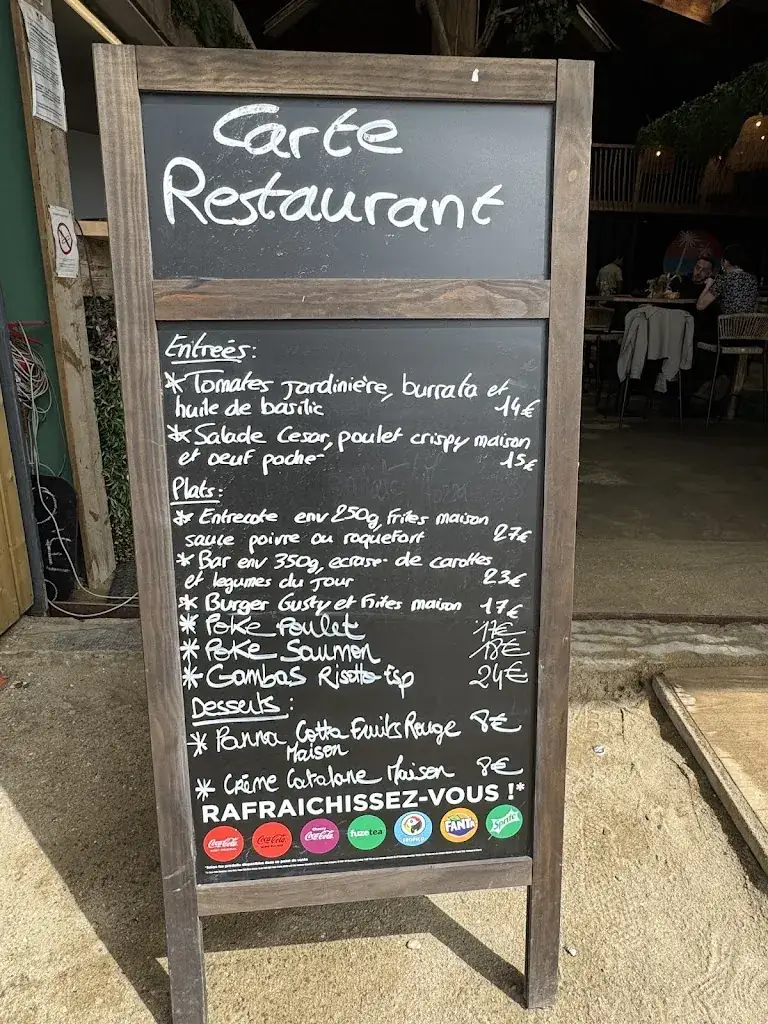 Carte
Restaurant
Entreés :
* Tomates jardinière, burrata et
huile de basilic 14€
* Salade Cesar, poulet crispy maison
et oeuf poche 15€
Plats :
* Entrecote env 250g, Frites maison
sauce poivre ou roquefort 27€
* Bar env 350g, ecrase de carottes
et legumes du jour 23€
* Burger Gusty et Frites maison 17€
* Poke Poulet 17€
* Poke Saumon 18€
* Gambas Risotto Esp 24€
Desserts :
* Panna Cotta Fruits Rouge 8€
Maison
* Crème Catalane Maison 8€
RAFRAICHISSEZ-VOUS !*
Coca-Cola Coca-Cola Cherry Coca-Cola fuzetea TROPICO FANTA Sprite